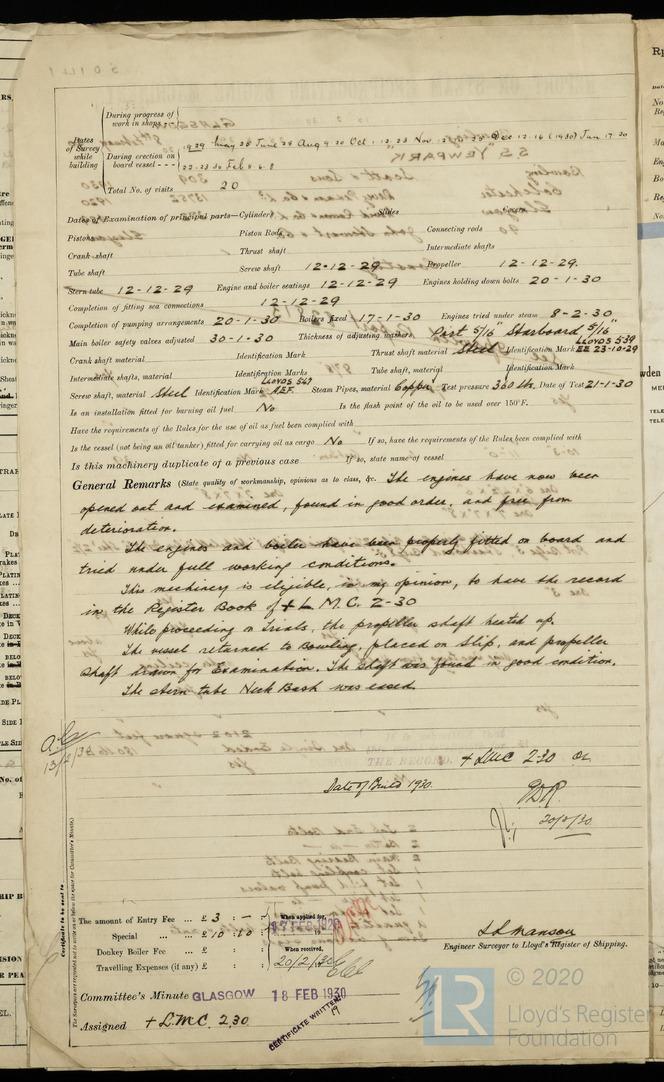 During progress of work in shops - -
Dates of Survey while building
1929 May 28 June 28 Aug 9.20 Oct 1.12.23 Nov Dec 12.16 (1930) Jan 17.20
During erection on board vessel - - -
22.23.30 Feb 6.8
Total No. of visits 20
Dates of Examination of principal parts—Cylinders Slides Covers
Pistons Piston Rods Connecting rods
Crank shaft Thrust shaft Intermediate shafts
Tube shaft Screw shaft 12-12-29 Propeller 12-12-29.
Stern tube 12-12-29 Engine and boiler seatings 12-12-29 Engines holding down bolts 20-1-30
Completion of fitting sea connections 12-12-29
Completion of pumping arrangements 20-1-30 Boilers fixed 17-1-30 Engines tried under steam 8-2-30
Main boiler safety valves adjusted 30-1-30 Thickness of adjusting washers Port 5/16" Starboard 5/16"
Crank shaft material Identification Mark Thrust shaft material Steel Identification Mark LLOYDS 539 EE 23-10-29
Intermediate shafts, material Identification Marks Tube shaft, material Identification Mark
Screw shaft, material Steel Identification Mark LLOYDS 547 AEF. Steam Pipes, material Copper Test pressure 360 lbs. Date of Test 21-1-30
Is an installation fitted for burning oil fuel No Is the flash point of the oil to be used over 150°F.
Have the requirements of the Rules for the use of oil as fuel been complied with
Is the vessel (not being an oil tanker) fitted for carrying oil as cargo No If so, have the requirements of the Rules been complied with
Is this machinery duplicate of a previous case If so, state name of vessel
General Remarks (State quality of workmanship, opinions as to class, &c. The engines have now been
opened out and examined, found in good order, and free from
deterioration.
The engines and boiler have been properly fitted on board and
tried under full working conditions.
This machinery is eligible, in my opinion, to have the record
in the Register Book of + L.M.C. 2-30
While proceeding on Trials, the propeller shaft heated up.
The vessel returned to Bowling, placed on Slip, and propeller
shaft drawn for Examination. The shaft was found in good condition.
The stern tube Neck Bush was eased.
13/2/30
THE RECORD. + LMC 2.30
Date of Build 1930.
20/2/30
Certificate to be sent to
The amount of Entry Fee ... £ 3 : - :
Special ... ... £ 10 : 10 :
Donkey Boiler Fee ... £ : :
Travelling Expenses (if any) £ : :
When applied for,
17 FEB 1930
When received,
20/2/30
Engineer Surveyor to Lloyd's Register of Shipping.
Committee's Minute GLASGOW 18 FEB 1930
Assigned + L.M.C. 2,30
CERTIFICATE WRITTEN
LR
© 2020
Lloyd's Register
Foundation